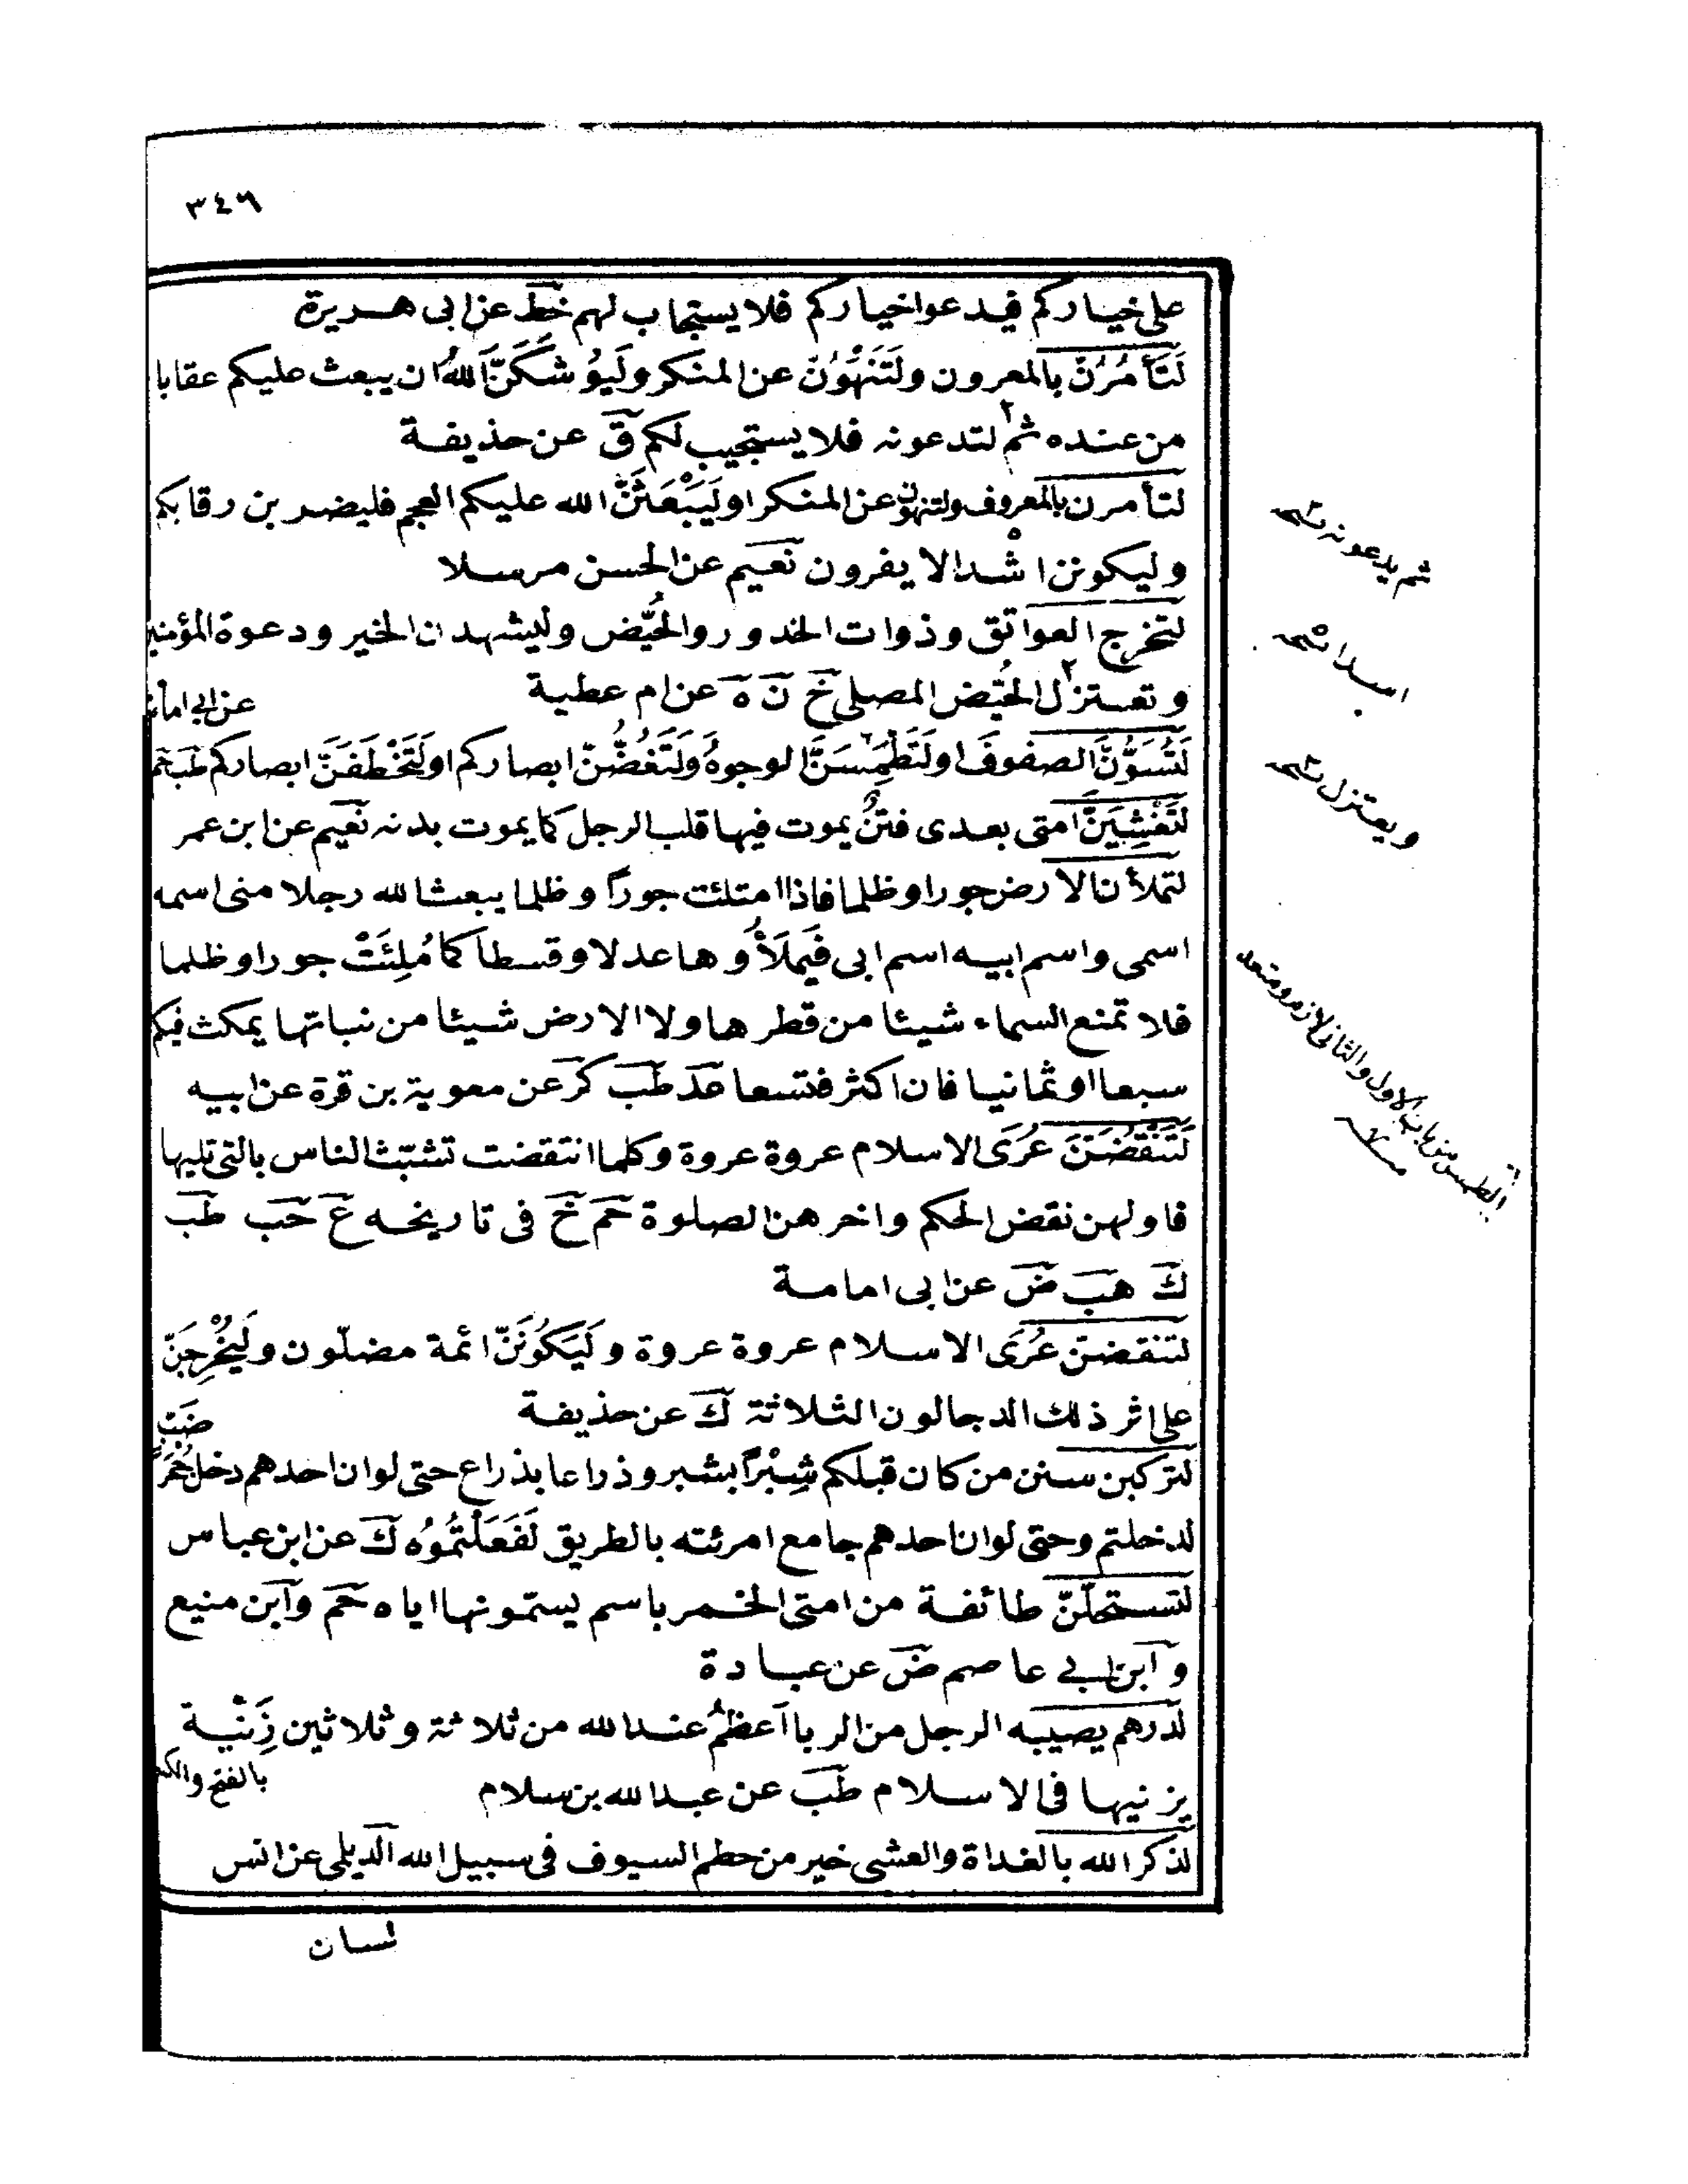 ٣٤٦
على خياركم فيدعوا خياركم فلا يستجاب لهم خط عن ابى هريرة
لَتَأمُرُنّ بالمعرون ولَتَنْهَوُنّ عن المنكر ولَيُوشَكَنَّ اللهُ ان يبعث عليكم عقابا
من عنده ثم٢ لتدعونه فلا يستجيب لكم ق عن حذيفة
لتأمرن بالمعروف ولتنهون عن المنكر او لَيَبْعَثَنَّ الله عليكم العجم فليضربن رقابكم
وليكونن اشدا٥ لا يفرون نعيم عن الحسن مرسلا
لتخرج العواتق وذوات الخدور والحُيّض وليشهدن الخير ودعوة المؤمنين
وتعستزل٢ الحُيّض المصلى خ ن ه عن ام عطية
عن ابى امامة
لَتُسَوُّنَّ الصفوفَ او لَتَطْمِسَنَّ الوجوهُ ولَتَغُضُّنّ ابصاركم او لَتَخْطَفَنَّ ابصاركم طب حم
لَتَغْشِيَنَّ امتى بعدى فتنٌ يموت فيها قلب الرجل كما يموت بدنه نعيم عن ابن عمر
لتملأن الارض جورا وظلما فاذا امتلئت جوراً وظلما يبعث الله رجلا منى اسمه
اسمى واسم ابيه اسم ابى فَيَملَأُوها عدلا وقسطا كما مُلِئَتْ جورا وظلما
فلا تمنع السماء شيئا من قطرها ولا الارض شيئا من نباتها يمكث فيكم
سبعا او ثمانيا فان اكثر فتسعا عد طب كر عن معوية بن قرة عن ابيه
لَتَنْقَضَنَّ عُرَى الاسلام عروة عروة وكلما انتقضت تشبّث الناس بالتى تليها
فاولهن نقض الحكم واخرهن الصلوة حم خ فى تاريخه ع حب طب
ك هب ض عن ابى امامة
لتنقضنّ عُرَى الاسلام عروة عروة ولَيَكُونَنّ ائمة مضلّون ولَيَخْرُجَنّ
على اثر ذلك الدجالون الثلاثة ك عن حذيفة
ضبّ
لتركبن سنن من كان قبلكم شِبْراً بشبر وذراعا بذراع حتى لو ان احدهم دخل جُحْرَ
لدخلتم وحتى لو ان احدهم جامع امرئته بالطريق لَفَعَلْتُمُوُه ك عن ابن عباس
لتستحلّنّ طائفة من امتى الخمر باسم يسمّونها اياه حم وابن منيع
وابن ابى عاصم ض عن عبادة
لدرهم يصيبه الرجل من الربا اعظمُ عند الله من ثلاثة وثلاثين زِنْيَة
بالفتح والكسر
يزنيها فى الاسلام طب عن عبد الله بن سلام
لذكر الله بالغداة والعشى خير من حطم السيوف فى سبيل الله الديلمى عن انس
لسان
ثم يدعونه نسخه
اسدا نسخه
ويعتزل نسخه
الطمس من باب الاول والثانى لازم ومتعد